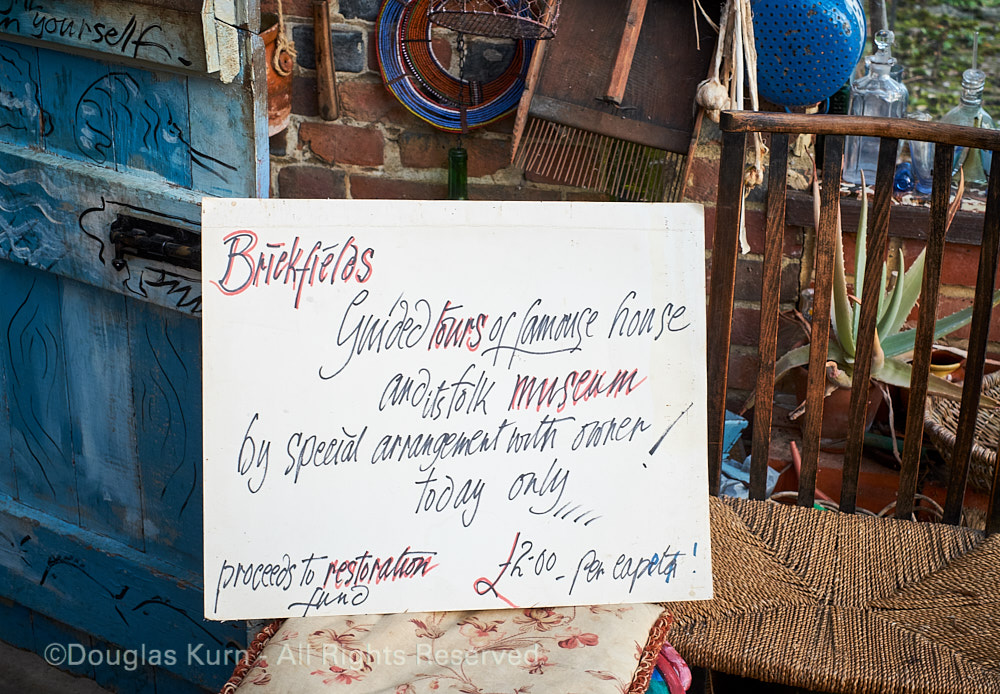 in yourself.
Brickfields
Guided tours of famouse house
and its folk museum
by special arrangement with owner!
today only
proceeds to restoration
fund
£2.00 - per capita!
©Douglas Kurn - All Rights Reserved